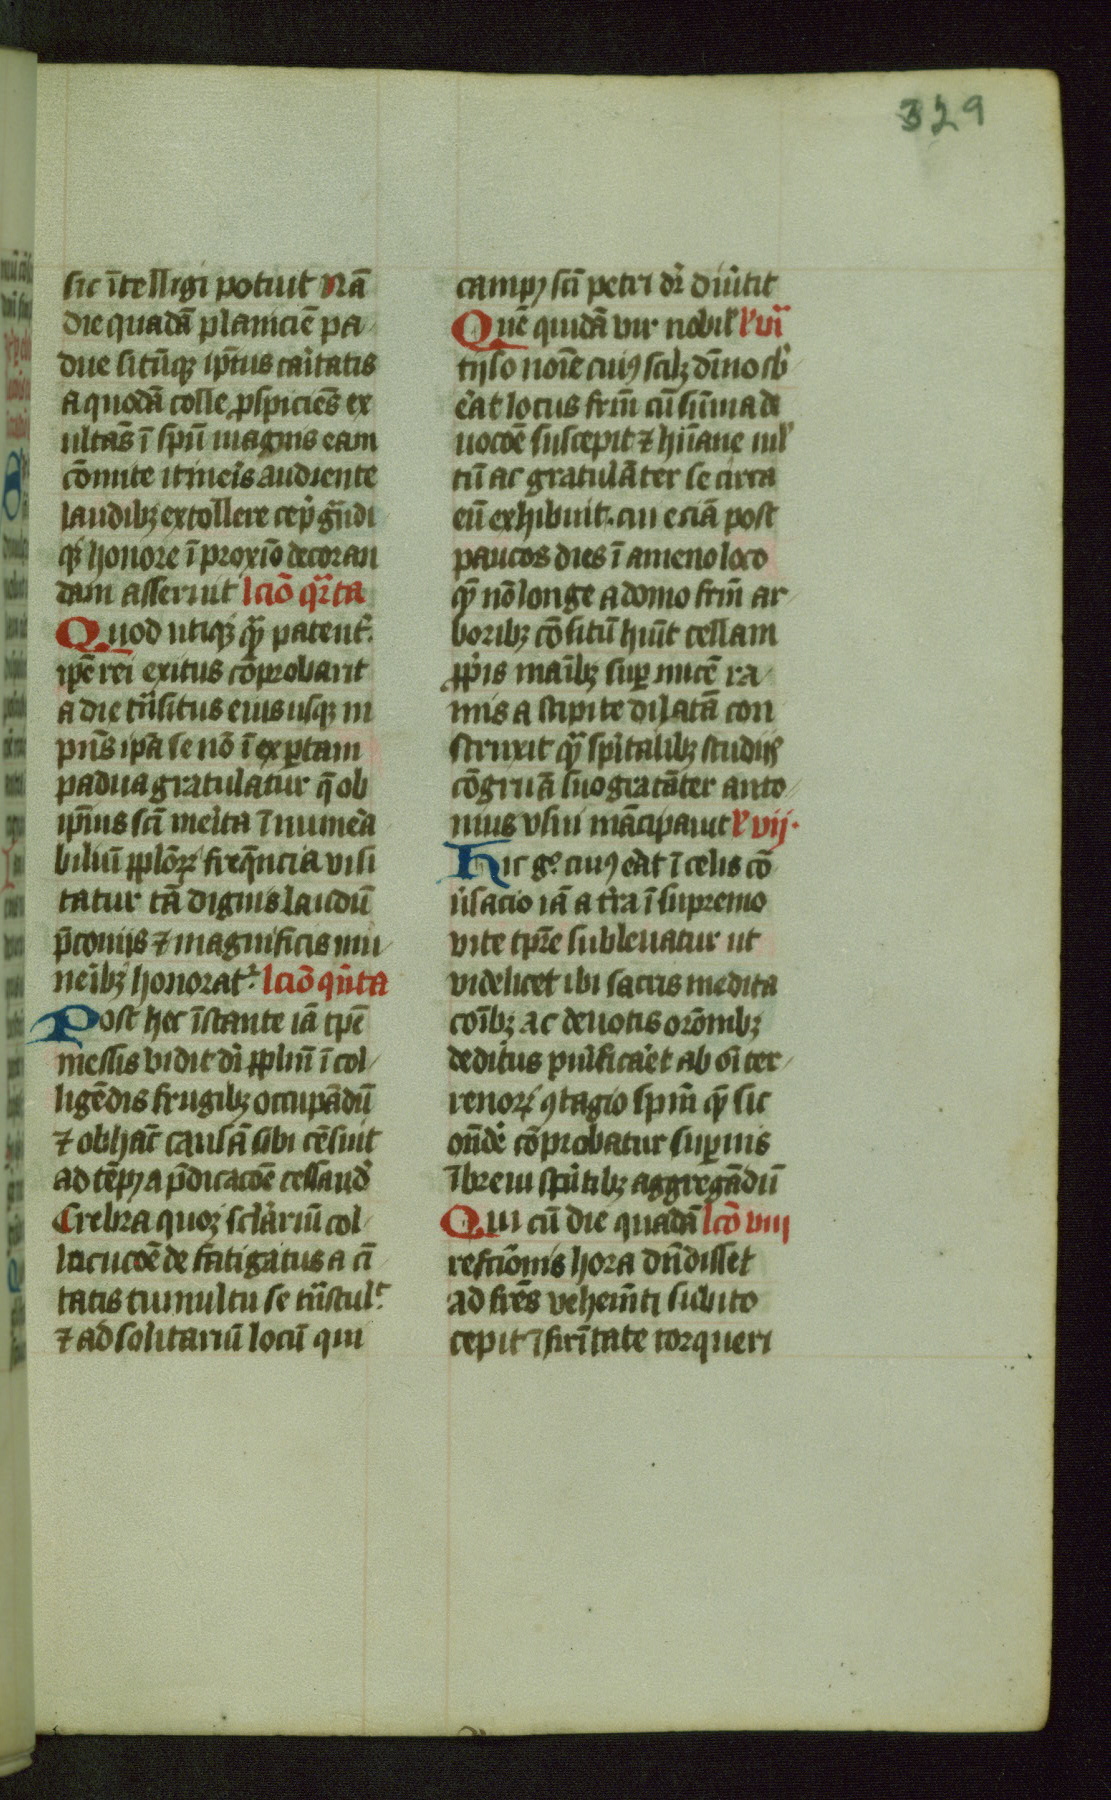 329
sic ītelligi potuit Nā
die quadā planiciē pa
due sitūqꝫ ip̄ius ciuitatis
a quodā colle ꝓspiciēs ex
ultās ī spū magnis eam
cōmite itineris audiente
laudibꝫ extollere cep̄ g̃ndi
qꝫ honore ī proxīo decoran
dam asseruit lciō qr̄ta
Quod utiqꝫ qꝫ patent᷑
ip̄e rei exitus cōprobauit
a die trāsitus eius usqꝫ in
pn̄s ip̄a se nō īexꝑtam
padua gratulatur q̄ ob
ip̄ius scī merita īnumera
biliū pp̄lorꝝ freq̄ncia visi
tatur tā dignis laudū
p̄conijs ⁊ magnificis mu
neribꝫ honorat᷑ lciō qn̄ta
Post hec īstante iā tp̄e
messis vidit dī pp̄lm̄ ī col
ligēdis frugibꝫ occupādū
⁊ ob hāc causā sibi cēsuit
ad tēpꝰ a p̄dicacōe cessand̄
Crebra quoqꝫ sclāriū col
locucōe defatigatus a ci
tatis tumultu se trāstul᷑
⁊ ad solitariū locū qui
campꝰ scī petri dr̄ diūtit
Quē quidā vir nobil᷑ l᷑ vi᷑
tyso noīe cuiꝰ scilꝫ dn̄io sb̄
erat locus frm̄ cū sūma de
uocōe suscepit ⁊ hūane mł
tū ac gratulāter se circa
eū exhibuit. cui eciā post
paucos dies ī ameno loco
qꝫ nō longe a domo frm̄ ar
boribꝫ cōsitū hīnt cellam
ꝓpriis manibꝫ suꝑ nucē ra
mis a stipite dilatā con
struxit qꝫ spiritalibꝫ studijs
cōgruā suo gratāter anto
nius vsui mācipauit l᷑ vij.
Hic gͦ cuiꝰ erat ī celis cō
ūsacio iā a tr̄a ī supremo
vite tp̄re subleuatur ut
videlicet ibi sacris medita
cōibꝫ ac deuotis orōnibꝫ
deditus purificaret ab oī ter
renorꝝ ꝯtagio spm̄ qꝫ sic
ondē cōprobatur suꝑnis
ī breui sp̄ūtibꝫ aggregādū
Qui cū die quadā lcō viii
refectiōnis hora dn̄disset
ad frēs vehemn̄ti subito
cepit īfirmitate torqueri